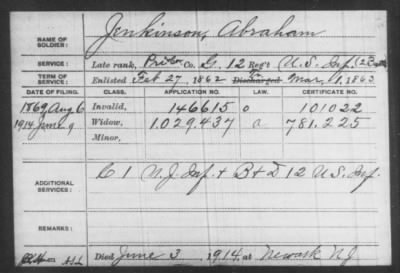 NAME OF SOLDIER: Jenkinson, Abraham
SERVICE: Late rank, Priv Co. G, 12 Reg't U.S. Inf.
TERM OF SERVICE: Enlisted Feb 27, 1862 Discharged Mar 1, 1863
DATE OF FILING. CLASS. APPLICATION NO. LAW. CERTIFICATE NO.
1869 Aug 6 Invalid, 146615 0 101022
1914 June 9 Widow, 1.029.437 a 781.225
Minor,
ADDITIONAL SERVICES: C 1 N.J. Inf. + B + D 12 U.S. Inf.
REMARKS:
Died June 3, 1914, at Newark NJ